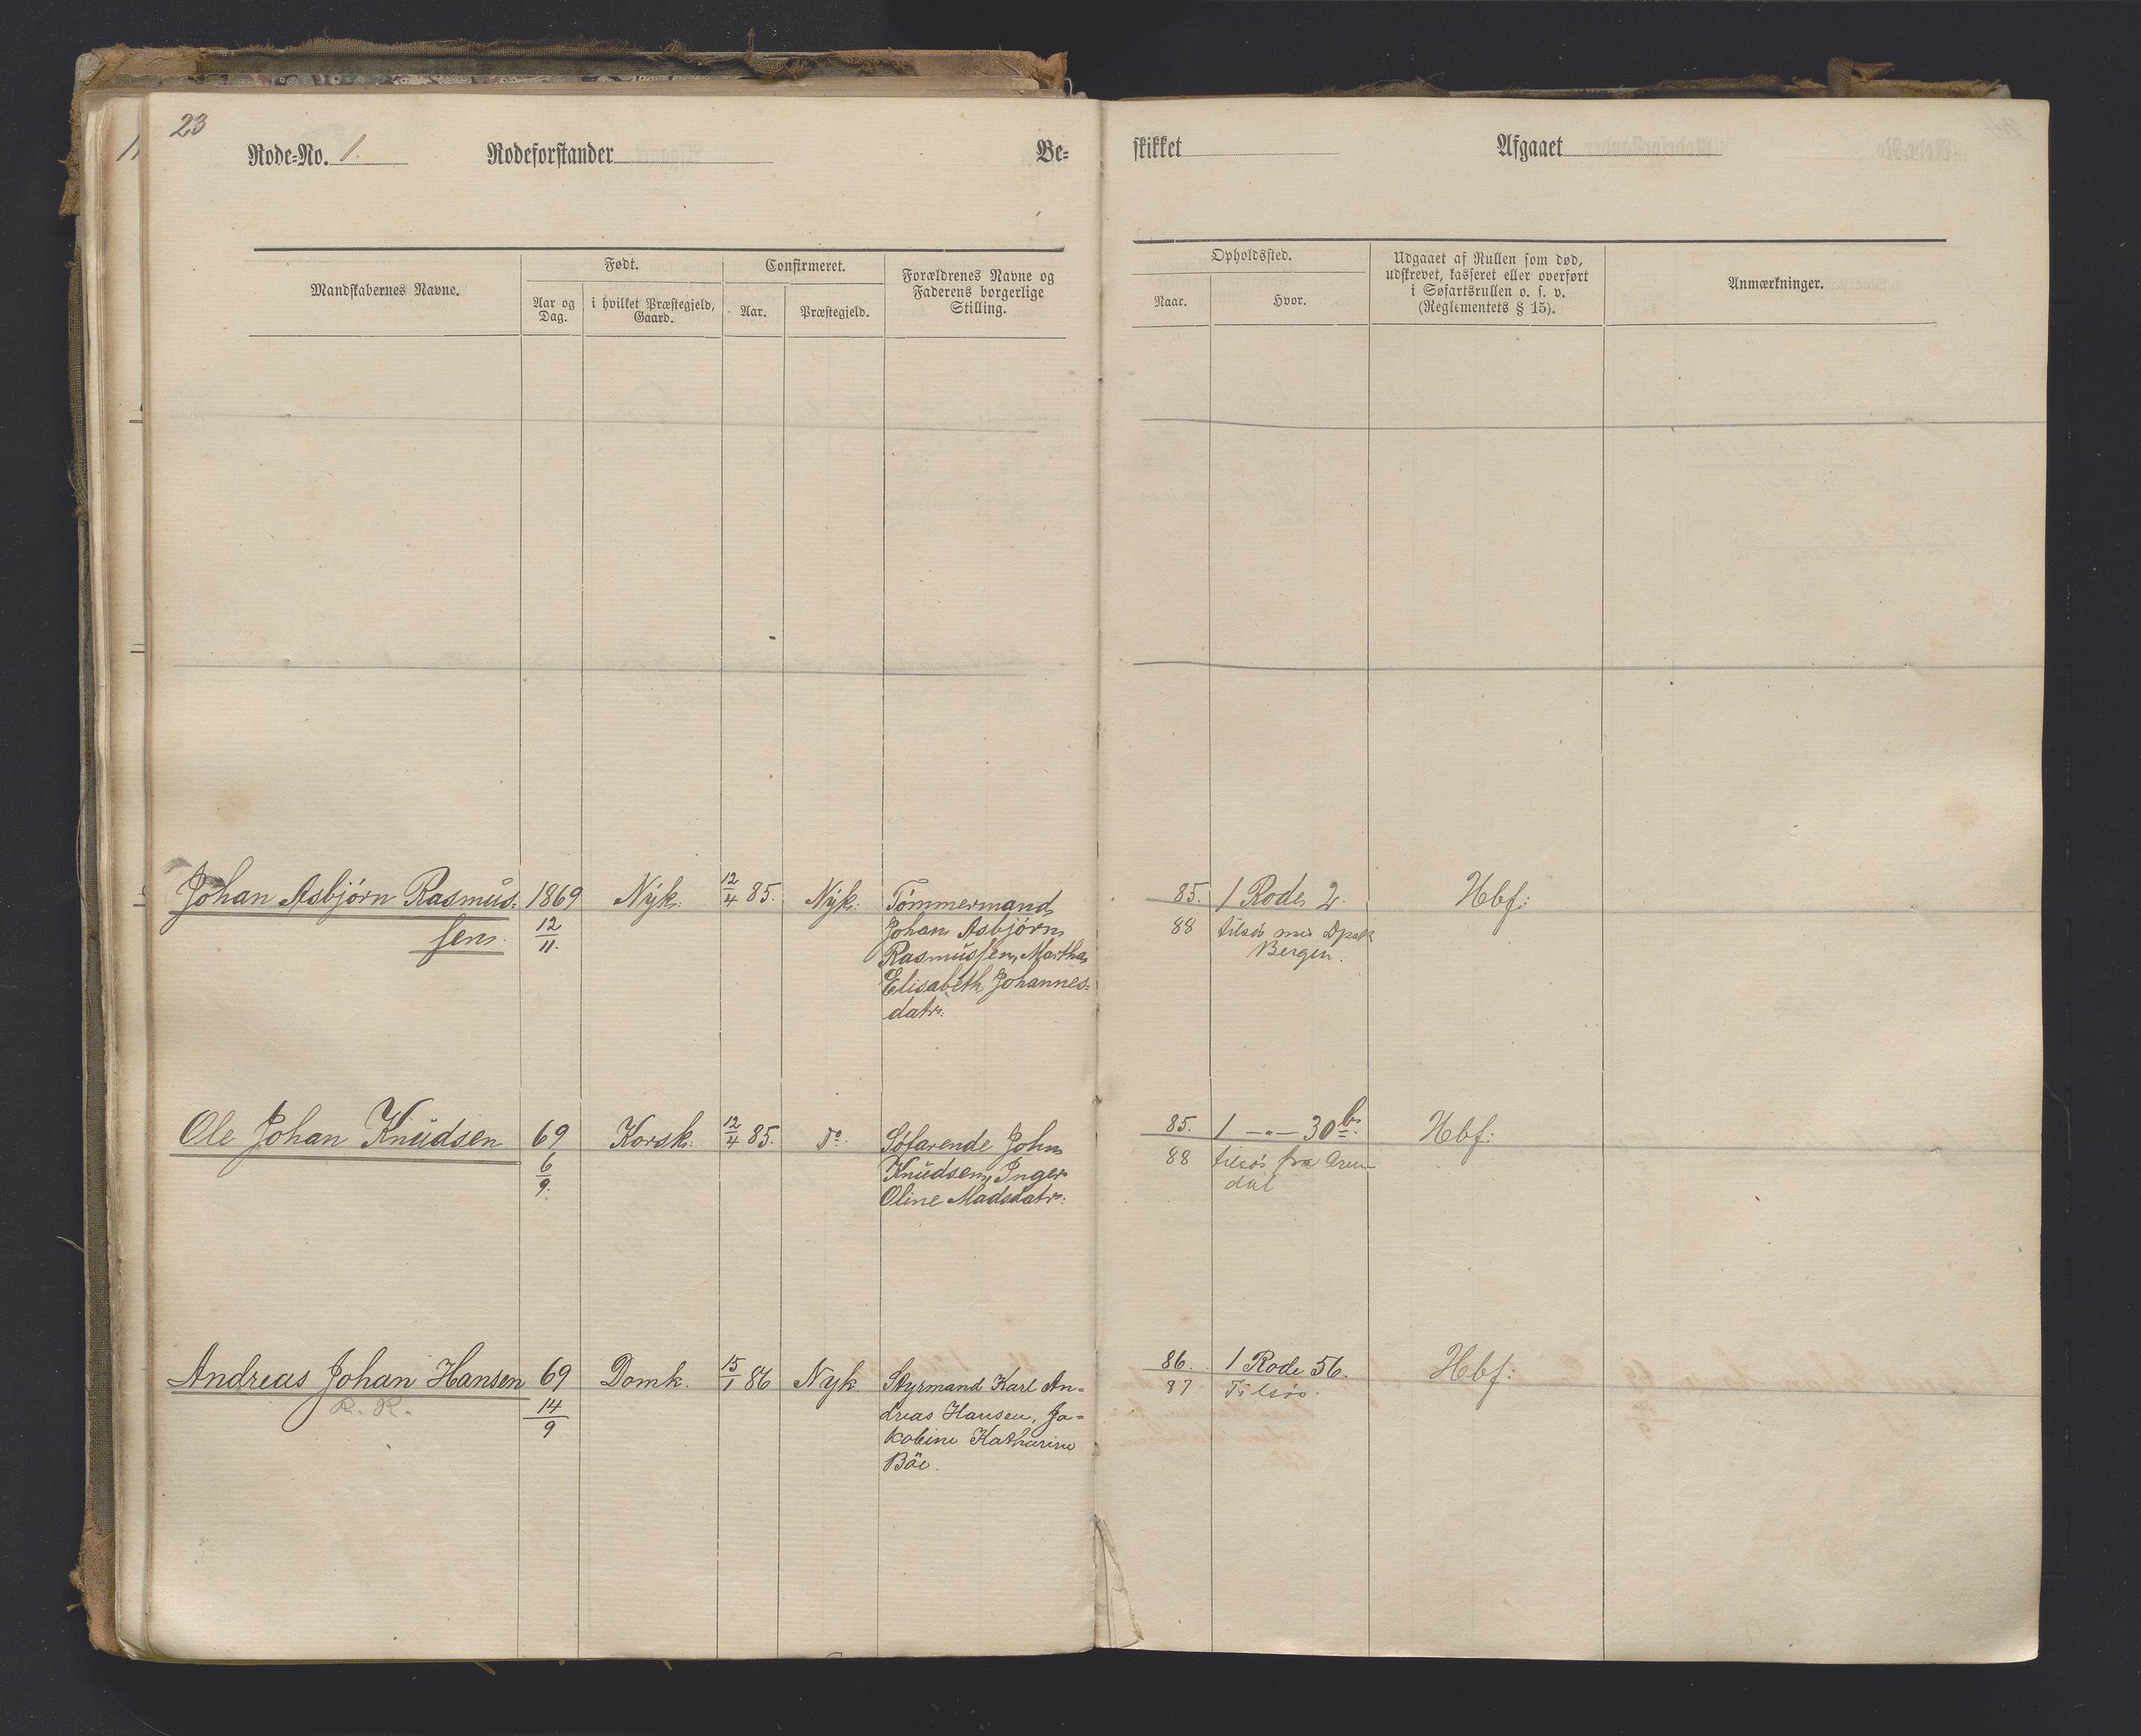 23
Rode-No. 1. Rodeforstander Be-
skikket Afgaaet
Mandskabernes Navne.
Født.
Aar og Dag.
i hvilket Præstegjeld, Gaard.
Confirmeret.
Aar.
Præstegjeld.
Forældrenes Navne og
Faderens borgerlige
Stilling.
Opholdssted.
Naar.
Hvor.
Udgaaet af Rullen som død,
udskrevet, kasseret eller overført
i Søfartsrullen o. s. v.
(Reglementets § 15).
Anmærkninger.
Johan Asbjörn Rasmus- 1869 Nyk: 12/4 85. Nyk: Tömmermand 85. 1 Rode 2. Hbf:
sen. 12/11. Johan Asbjörn 88 tilsös med
Rasmussen, Martha Bergen.
Elisabeth Johannes-
datr:
Ole Johan Knudsen 69 Korsk: 12/4 85. Do. Söfarende John 85. 1 —"— 30b. Hbf:
6/9. Knudsen, Inger 88 tilsös fra Aren
Oline Madsdatr: dal
Andreas Johan Hansen 69 Domk. 15/1 86 Nyk Styrmand Karl An- 86. 1 Rode 56. Hbf:
R. R. 14/9 dreas Hansen, Ja- 87 Tilsös.
kobine Katharine
Böe.